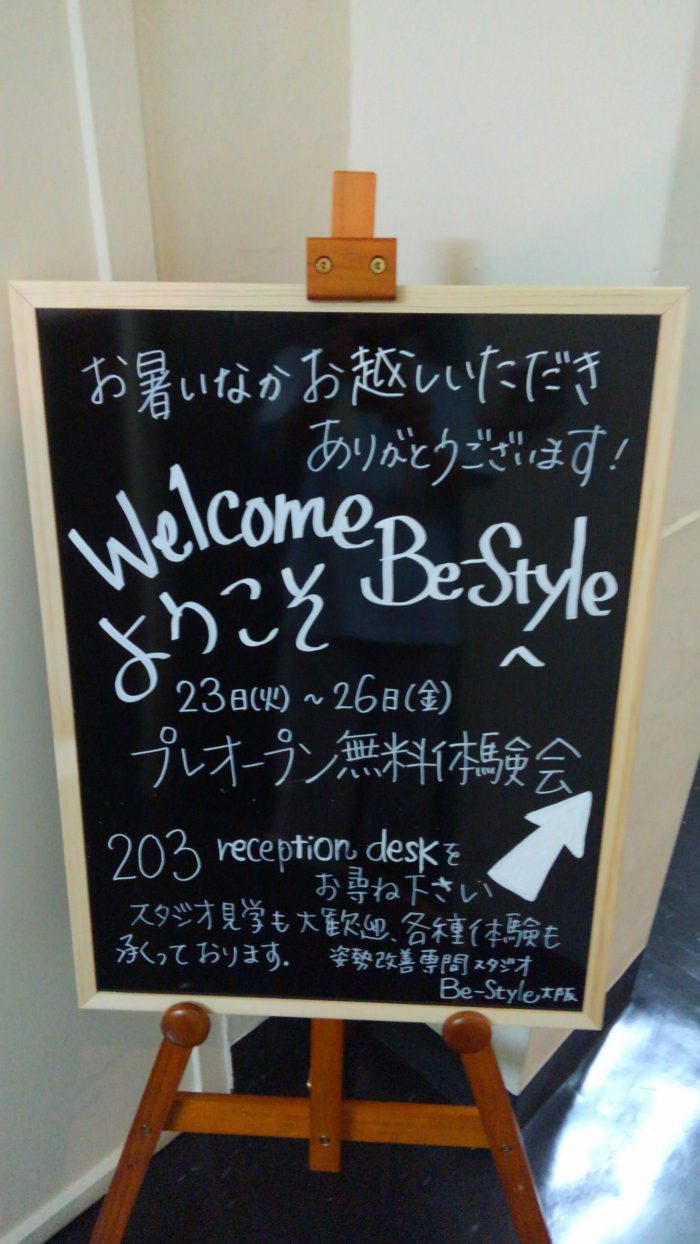 お暑いなかお越しいただき
ありがとうございます!
Welcome
ようこそ Be-Style
へ
23日(火)~26日(金)
プレオープン無料体験会
203 reception deskを
お尋ね下さい
スタジオ見学も大歓迎、各種体験も
承くっております.
姿勢改善専門スタジオ
Be-Style大阪